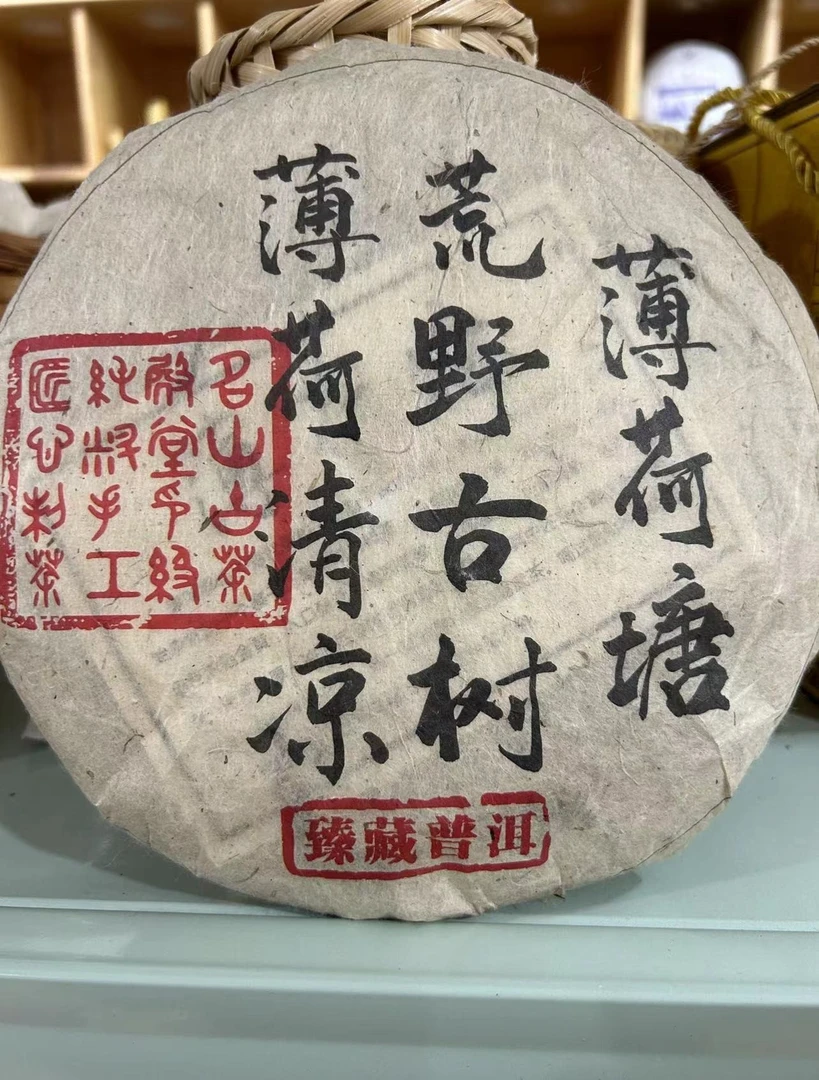 薄荷塘
荒野古树
薄荷清凉
名山古茶
殿堂印级
纯料手工
匠心朴茶
臻藏普洱